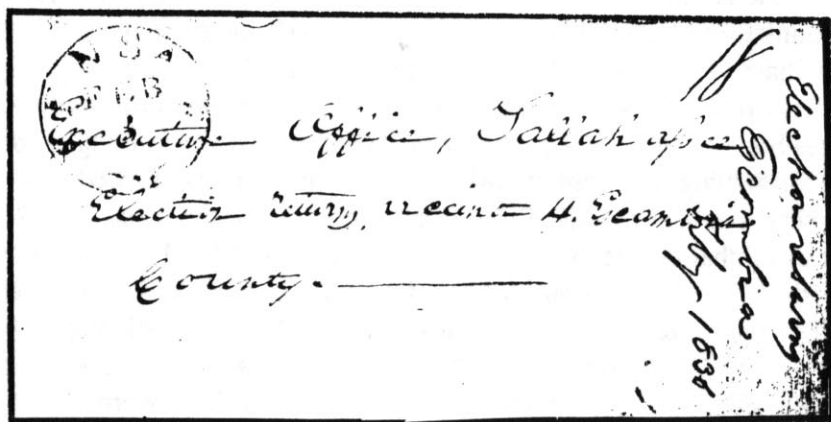 FEB
18
Executive Office, Tallahassee
Election returns, precinct 4. Escambia
County.
Election returns
Escambia
1838